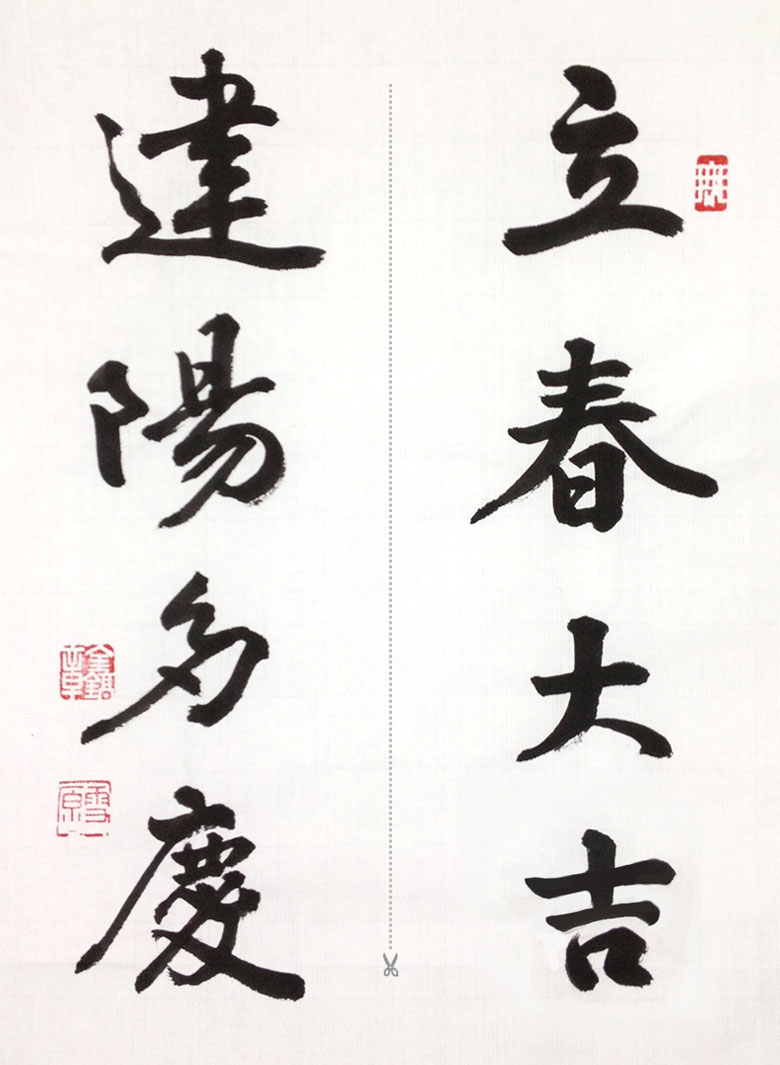 立春大吉
建陽多慶
雪原